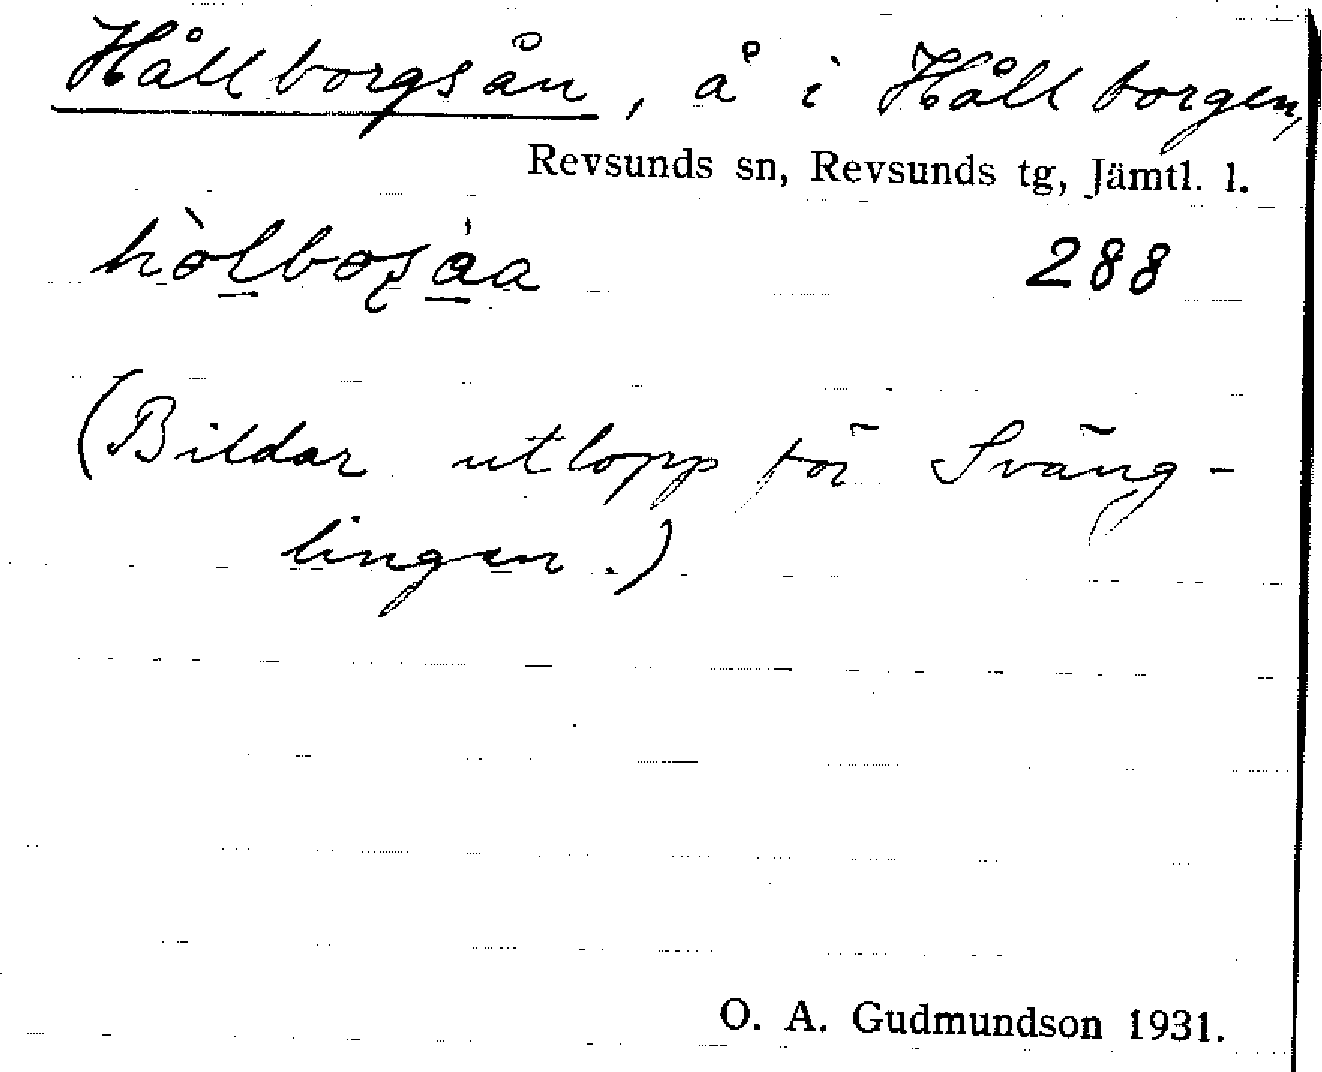 Hållborgsån, å i Hållborgen,
Revsunds sn, Revsunds tg, Jämtl. l.
288
(Bildar utlopp för Sväng-
lingen.)
O. A. Gudmundson 1931.